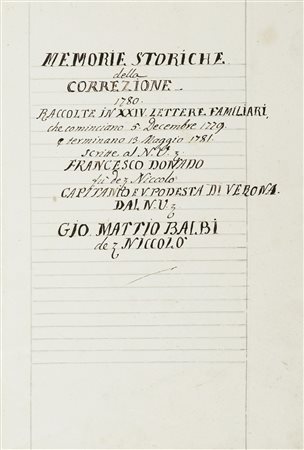 MEMORIE STORICHE
della
CORREZIONE
1780.
RACCOLTE IN XXIV LETTERE FAMILIARI,
che cominciano 5. Decembre 1779.
e terminano 13. Maggio 1781.
Scritte al N. U. z
FRANCESCO DONADO
fù de z Niccolò
CAPITANIO E V. PODESTA DI VERONA.
DAL N. U. z
GIO. MATTIO BALBI
de z NICCOLO